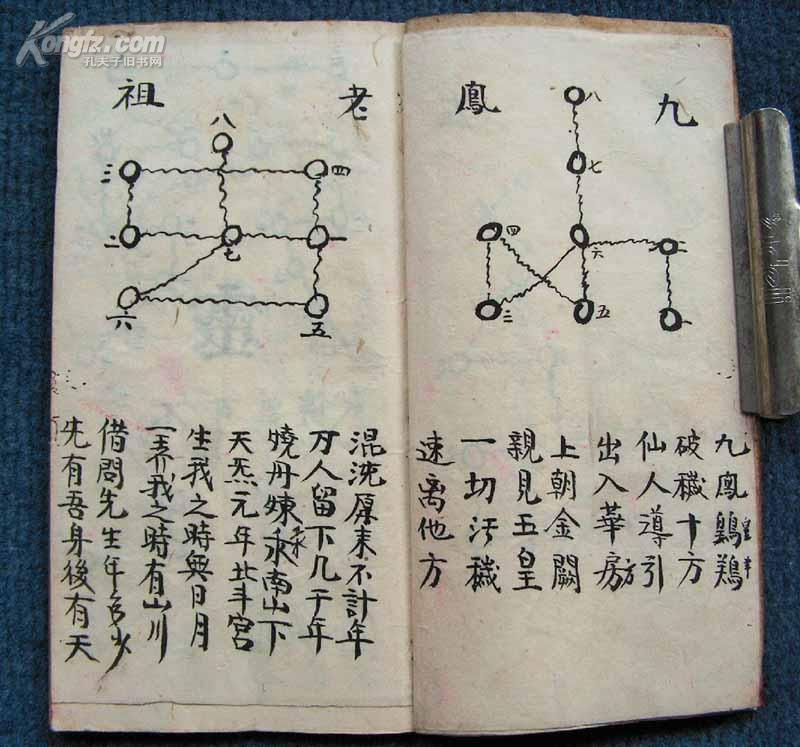 九鳳
八
七
四
六
二
三
五
一
九鳳
破穢十方
仙人導引
出入華房
上朝金闕
親見五皇
一切汙穢
速离他方
老祖
八
三
四
二
七
一
六
五
混沌原来不計年
万人留下几千年
燒丹煉南山下
天炁元年北斗宫
生我之時無日月
養我之時有山川
借問先生年多少
先有吾身後有天
Kongfz.com
孔夫子旧书网